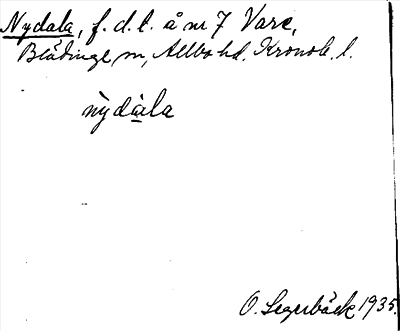 Nydala, f. d. l. å nr 7 Vare,
Blädinge sn, Allbo hd. Kronob. l.
nỳdàla
O. Segerbäck 1935.